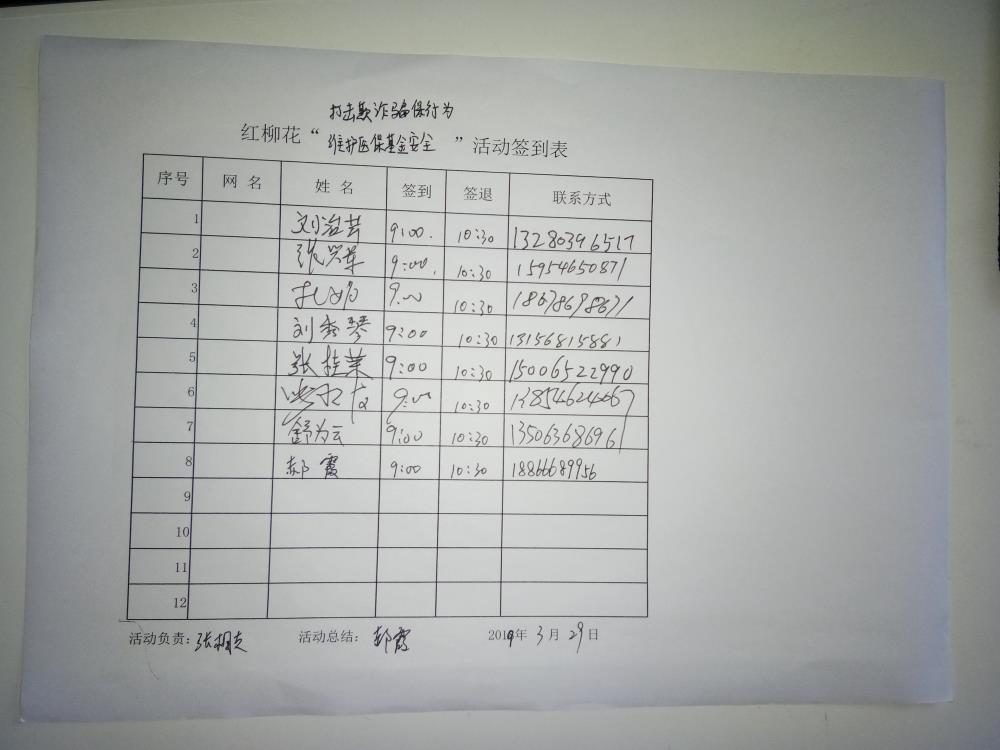 打击欺诈骗保行为
红柳花“ 维护医保基金安全 ”活动签到表
序号 网 名 姓 名 签到 签退 联系方式
1 刘治芸 9:00. 10:30 13280396517
2 张兴革 9:00. 10:30 15954650871
3 9:00 10:30 18678678671
4 刘秀琴 9:00 10:30 13156815881
5 张桂菜 9:00 10:30 15006522990
6 9:00 10:30
7 舒为云 9:00 10:30 13506368696
8 郝霞 9:00 10:30 18866689956
9
10
11
12
活动负责: 活动总结: 郝霞 2019年 3月 29日